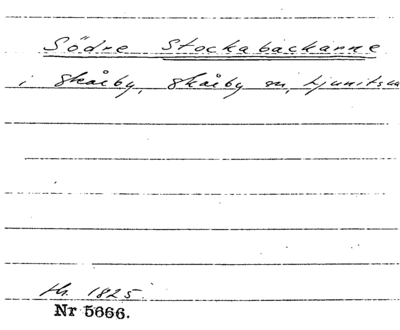 Södre Stockabackarne
i Skårby, Skårby sn, Ljunits
hr. 1825.
Nr 5666.